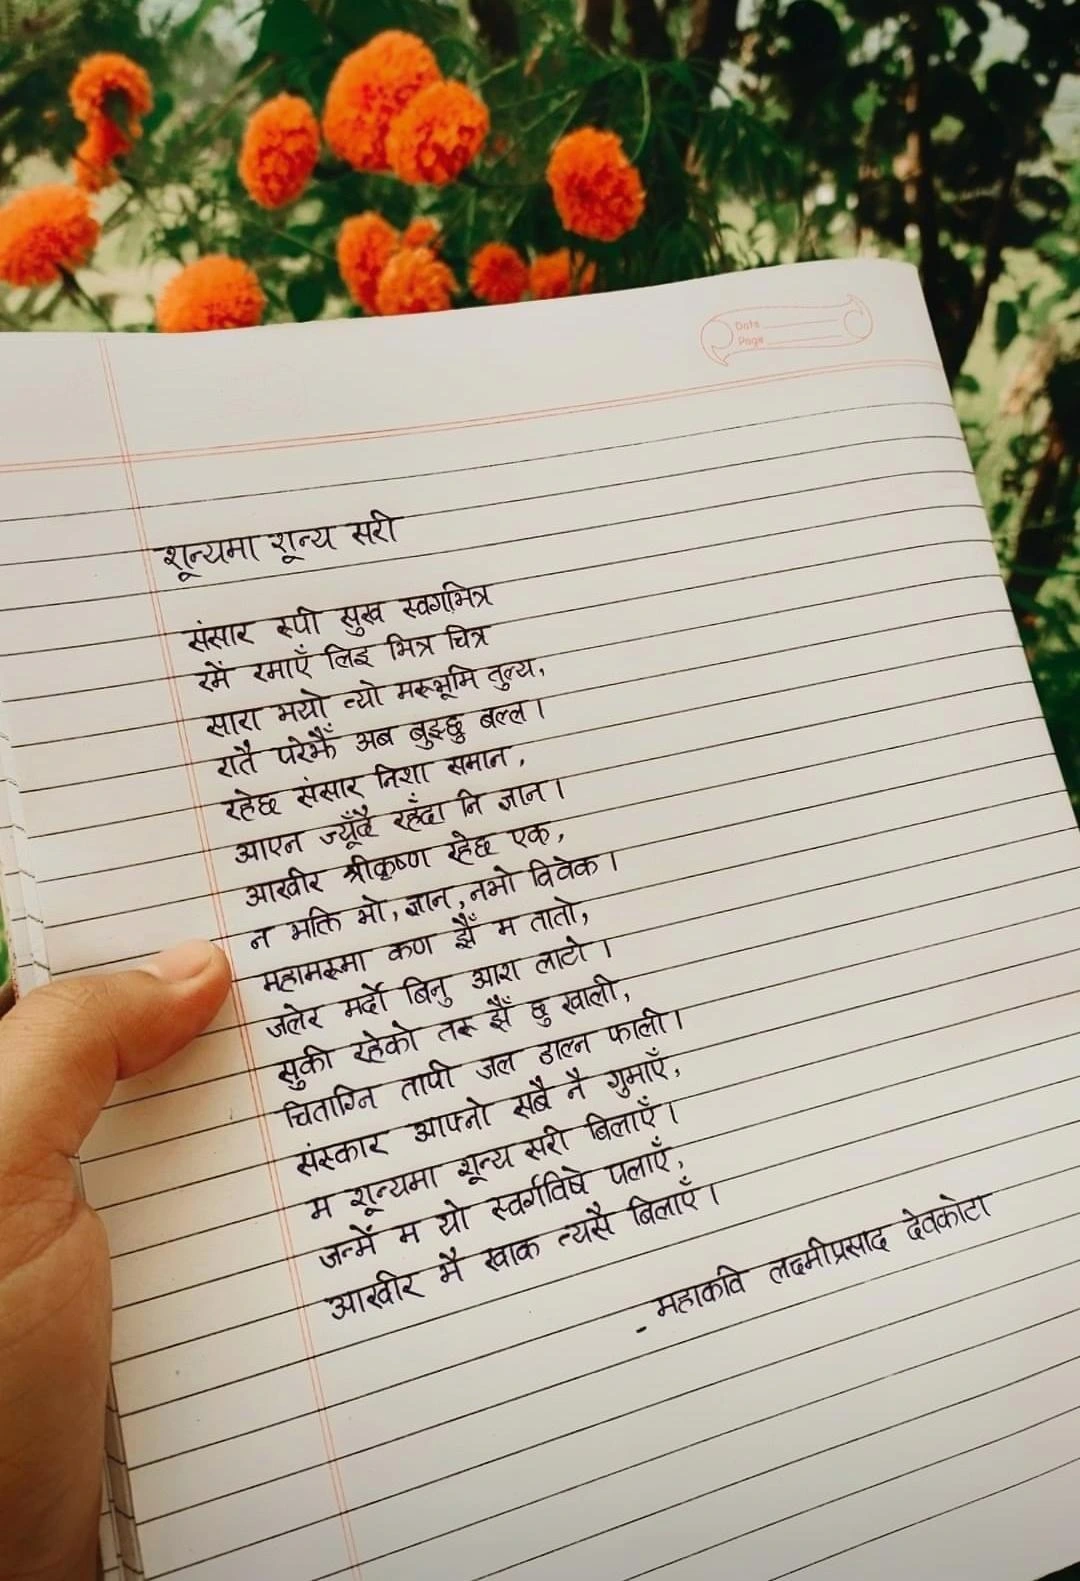 Date
Page
शून्यमा शून्य सरी
संसार रुपी सुख स्वर्गभित्र
रमेँ रमाएँ लिइ भित्र चित्र
सारा भयो त्यो मरूभूमि तुल्य,
रातै परेझैँ अब बुझ्छु बल्ल।
रहेछ संसार निशा समान,
आएन ज्यूँदै रहँदा नि ज्ञान।
आखीर श्रीकृष्ण रहेछ एक,
न भक्ति भो, ज्ञान, नभो विवेक।
महामरूमा कण झैँ म तातो,
जलेर मर्दो बिनु आश लाटो।
सुकी रहेको तरू झैँ छु खाली,
चिताग्नि तापी जल डाल्न फाली।
संस्कार आफ्नो सबै नै गुमाएँ,
म शून्यमा शून्य सरी बिलाएँ।
जन्मेँ म यो स्वर्गविषे पलाएँ,
आखीर भै खाक त्यसै बिलाएँ।
- महाकवि लक्ष्मीप्रसाद देवकोटा